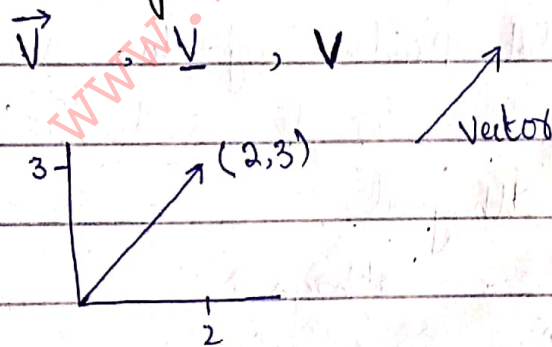 V⃗ , V̲ , V
www.
vector
3 (2,3)
2